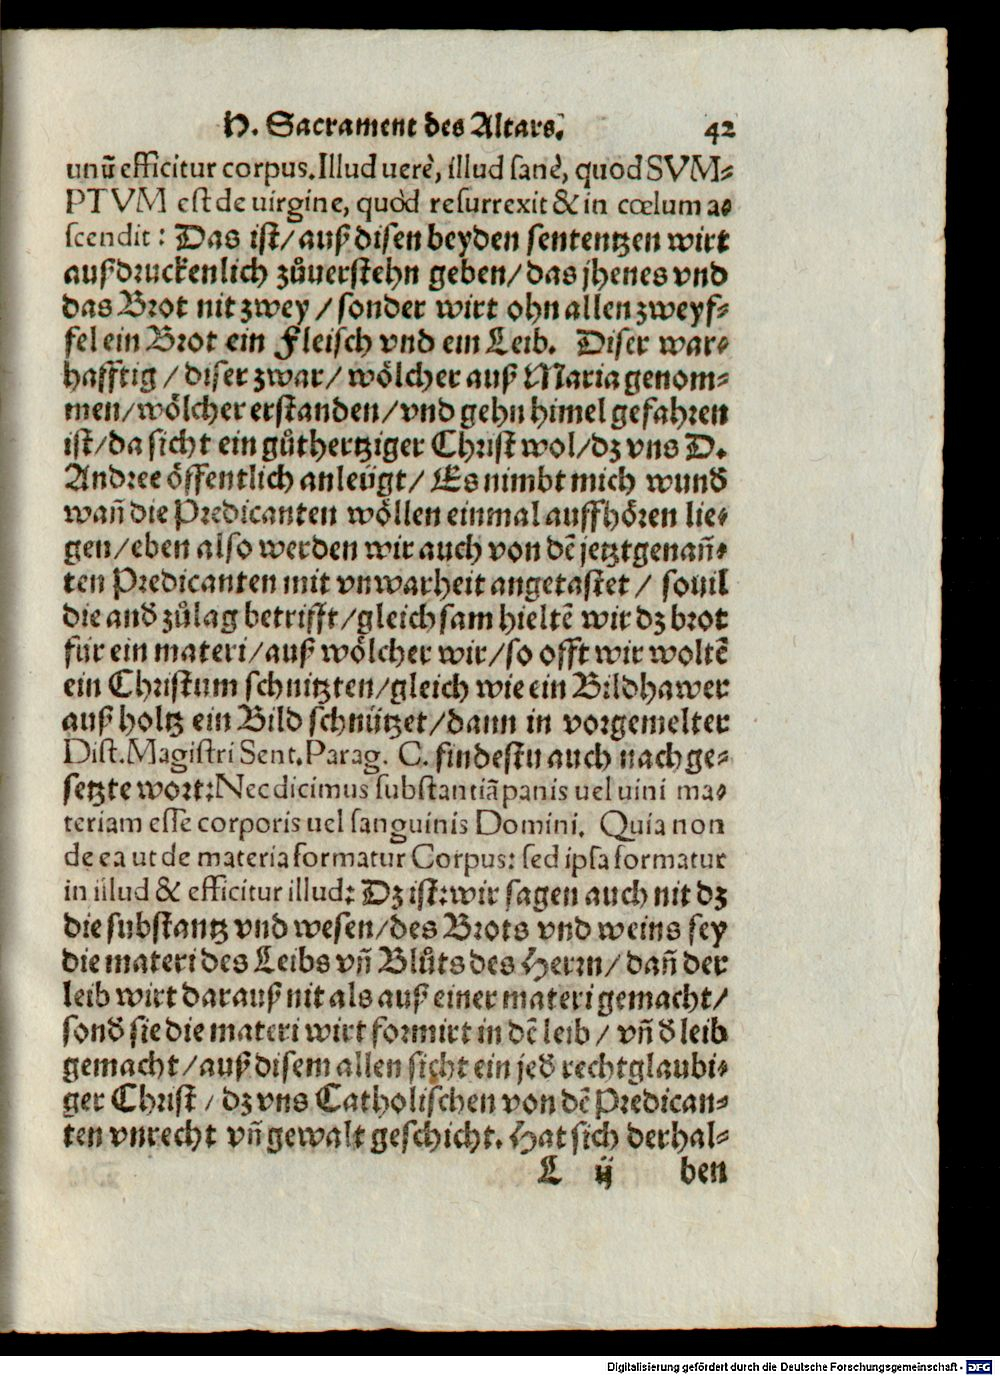 H. Sacrament des Altars. 42
unū efficitur corpus. Illud uerè, illud sanè, quod SVM-
PTVM est de uirgine, quòd resurrexit & in cœlum a-
scendit: Das ist/ auß disen beyden sententzen wirt
außdruckenlich zůuerstehn geben/ das jhenes vnd
das Brot nit zwey / sonder wirt ohn allen zweyf-
fel ein Brot ein Fleisch vnd ein Leib. Diser war-
hafftig / diser zwar/ wölcher auß Maria genom-
men/ wölcher erstanden/ vnd gehn himel gefahren
ist/ da sicht ein gůthertziger Christ wol/ dz vns D.
Andree öffentlich anleügt/ Es nimbt mich wund
wañ die Predicanten wöllen einmal auffhören lie-
gen/ eben also werden wir auch von dē jetztgenañ-
ten Predicanten mit vnwarheit angetastet / souil
die and zůlag betrifft/ gleichsam hieltē wir dz brot
für ein materi/ auß wölcher wir/ so offt wir woltē
ein Christum schnitzten/ gleich wie ein Bildhawer
auß holtz ein Bild schnützet/ dann in vorgemelter
Dist. Magistri Sent. Parag. C. findestu auch nachge-
setzte wort: Nec dicimus substantiā panis uel uini ma-
teriam esse corporis uel sanguinis Domini. Quia non
de ea ut de materia formatur Corpus: sed ipsa formatur
in illud & efficitur illud: Dz ist: wir sagen auch nit dz
die substantz vnd wesen/ des Brots vnd weins sey
die materi des Leibs vñ Blůts des Herrn/ dañ der
leib wirt darauß nit als auß einer materi gemacht/
sond sie die materi wirt formirt in dē leib / vñ d leib
gemacht/ auß disem allen sicht ein jed rechtglaubi-
ger Christ / dz vns Catholischen von dē Predican-
ten vnrecht vñ gewalt geschicht. Hat sich derhal-
L ij ben
Digitalisierung gefördert durch die Deutsche Forschungsgemeinschaft - DFG